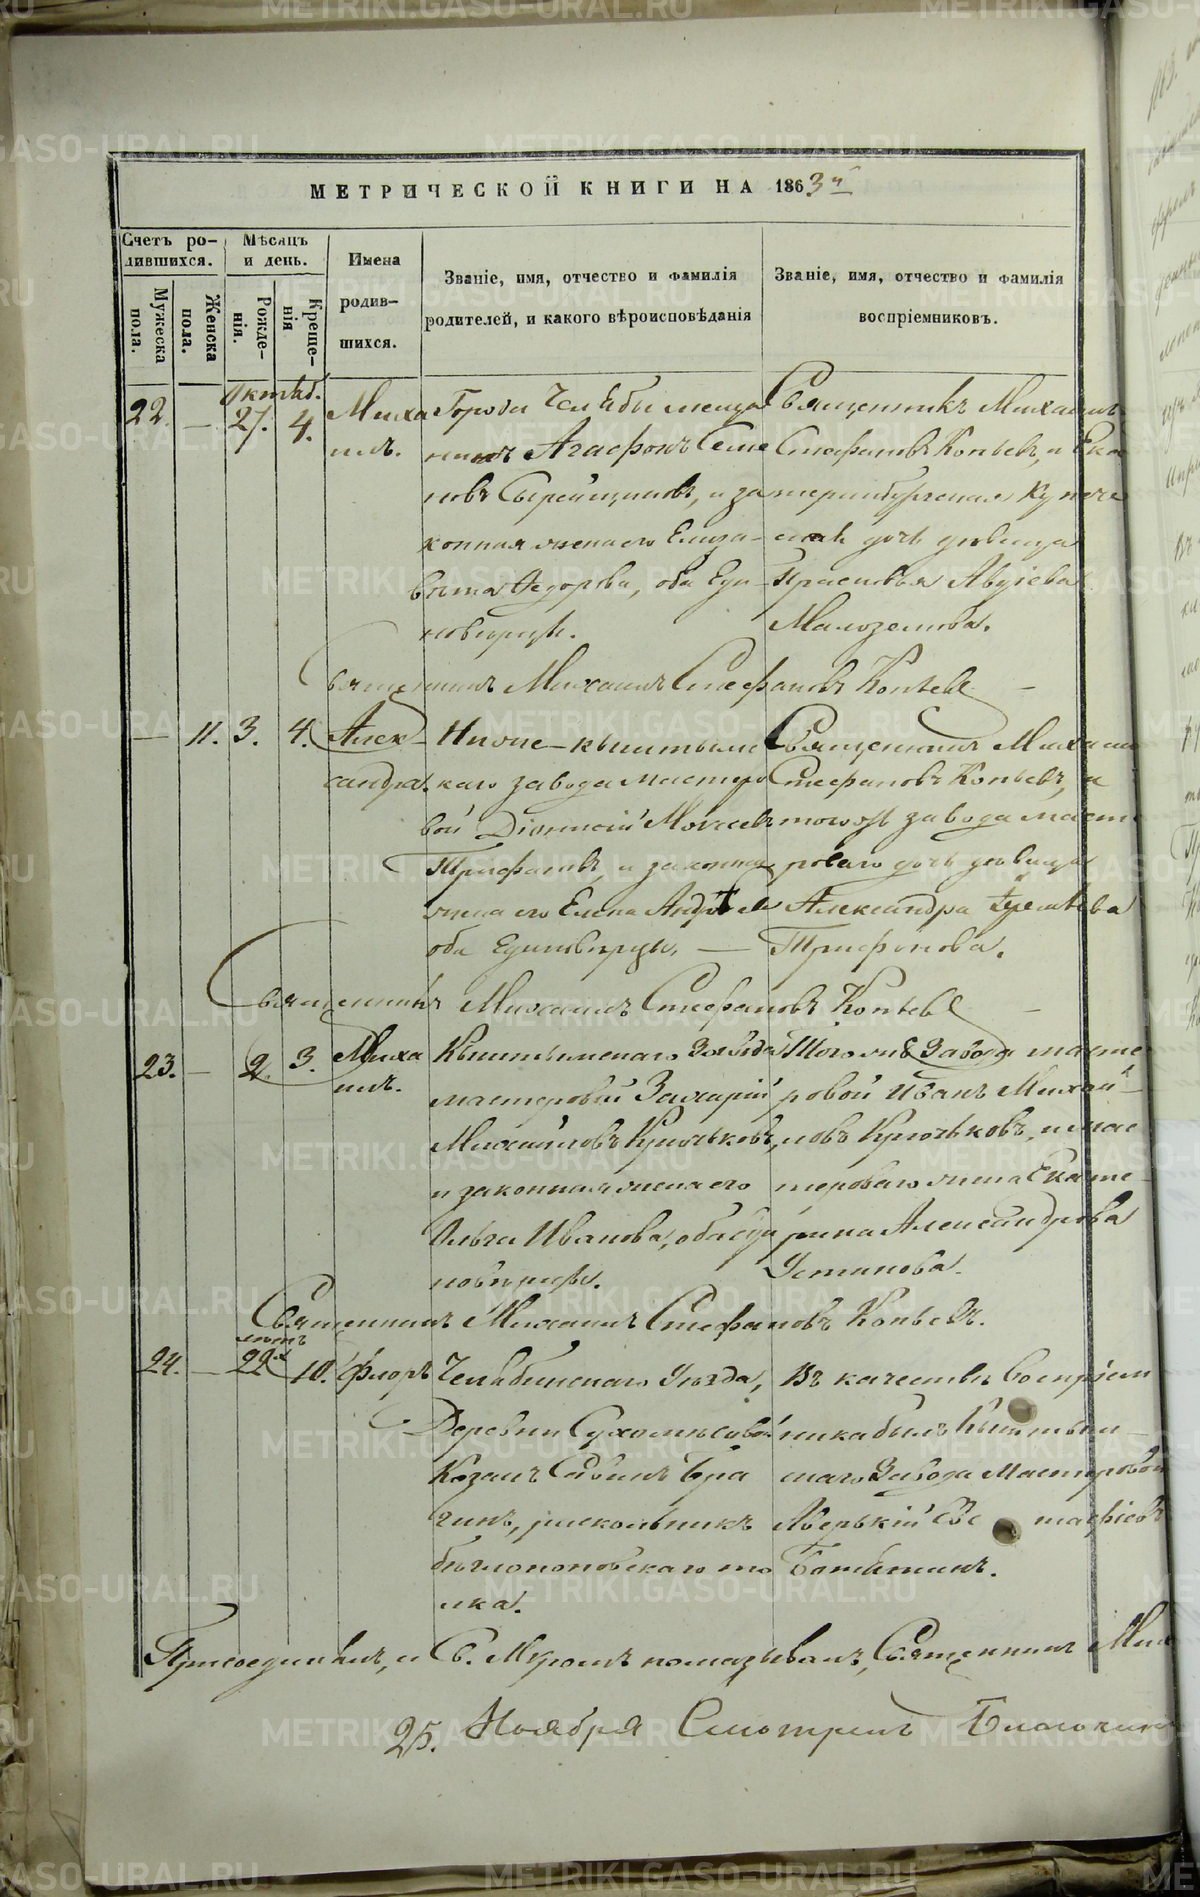 МЕТРИЧЕСКОЙ КНИГИ НА 1863й
Счетъ ро-
дившихся.
Мѣсяцъ
и день.
Имена
родив-
шихся.
Званіе, имя, отчество и фамилія
родителей, и какого вѣроисповѣданія
Званіе, имя, отчество и фамилія
воспріемниковъ.
Мужеска
пола.
Женска
пола.
Рожде-
нія.
Креще-
нія
Октяб.
22. — 27. 4. Миха
илъ.
Города Челябы меща
нинъ Агафонъ Семе
новъ Сырейщиковъ, и за
конная жена его Елиза-
вета Федорова, оба Еди-
новерцы.
Священникъ Михаилъ
Стефановъ Копьевъ, и Ека
теринбургская купече
ская дочь девица
Прасковья Авдіева
Малоземова.
Священникъ Михаилъ Стефановъ Копьевъ —
— 11. 3. 4. Алек-
сандра.
Нижне-кыштымс
каго завода мастеро
вой Діонисій Моисеевъ
Трифоновъ, и законная
жена его Елена Андреева
оба Единоверцы. —
Священникъ Михаилъ
Стефановъ Копьевъ, и
тогожъ завода масте
роваго дочь девица
Александра
Трифонова.
Священникъ Михаилъ Стефановъ Копьевъ —
23. — 2. 3. Миха
илъ.
Кыштымскаго Завода
мастеровой Захарій
Михайловъ Крючьковъ,
и законная жена его
Ольга Иванова, оба еди
новерцы.
Того же Завода масте
ровой Иванъ Михай-
ловъ Крючьковъ, и мас
тероваго жена Екате-
рина Александрова
Устинова.
Священникъ Михаилъ Стефановъ Копьевъ.
24. — летъ 22х 10. Флоръ
Челябинскаго Уезда,
Деревни Сухомесовой
Козакъ Савинъ Бра
гинъ, раскольникъ
беглопоповскаго то
лка.
Въ качестве Воспріем
ника былъ Кыштым-
скаго Завода Мастеровой
Аверькій Евстафіевъ
Присоединилъ, и Св. Мѵромъ помазывалъ, Священникъ Мих
25. Ноября Смотрелъ Благочин
METRIKI.GASO-URAL.RU